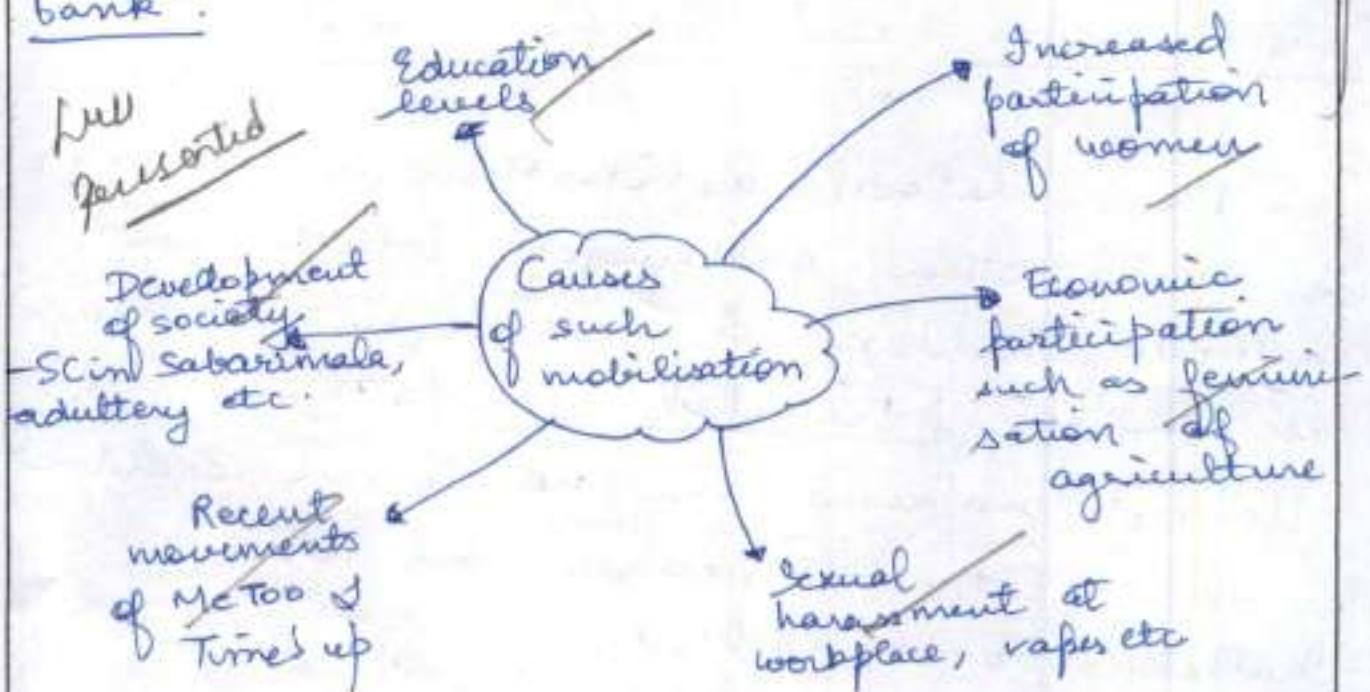 bank.
Well
presented
Education
levels
Increased
participation
of women
Causes
of such
mobilisation
Development
of society
- SC in Sabarimala,
adultery etc.
Economic
participation
such as femini-
sation of
agriculture
Recent
movements
of MeToo &
Time's up
Sexual
harassment at
workplace, rapes etc